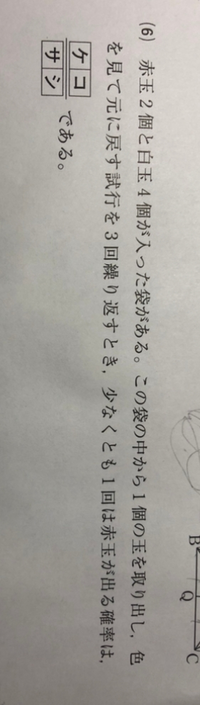 (6) 赤玉2個と白玉4個が入った袋がある。この袋の中から1個の玉を取り出し,色
を見て元に戻す試行を3回繰り返すとき,少なくとも1回は赤玉が出る確率は,
ケコ
サシ
である。
B
Q
C